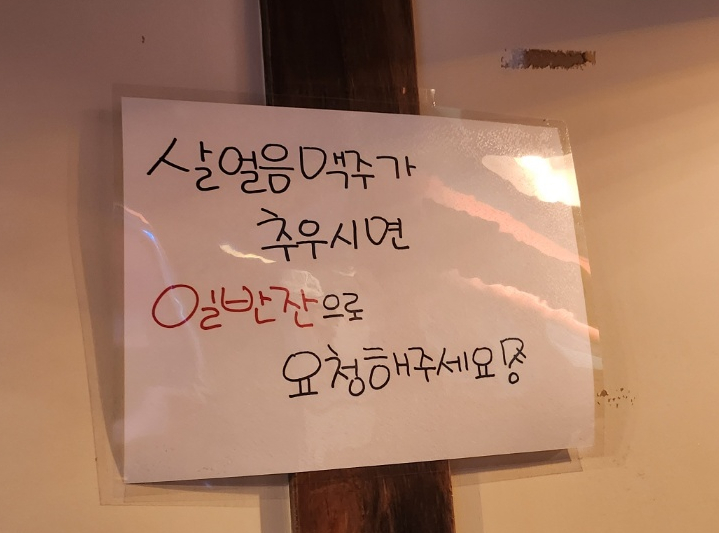 살얼음맥주가
추우시면
일반잔으로
요청해주세요